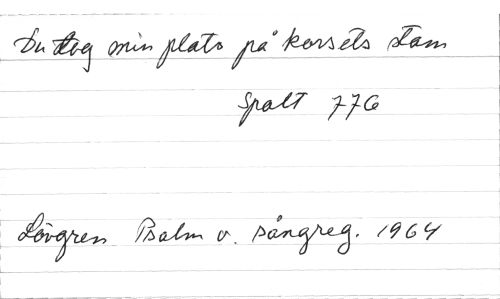 Du tog min plats på korsets stam
Spalt 776
Lövgren Psalm o. sångreg. 1964